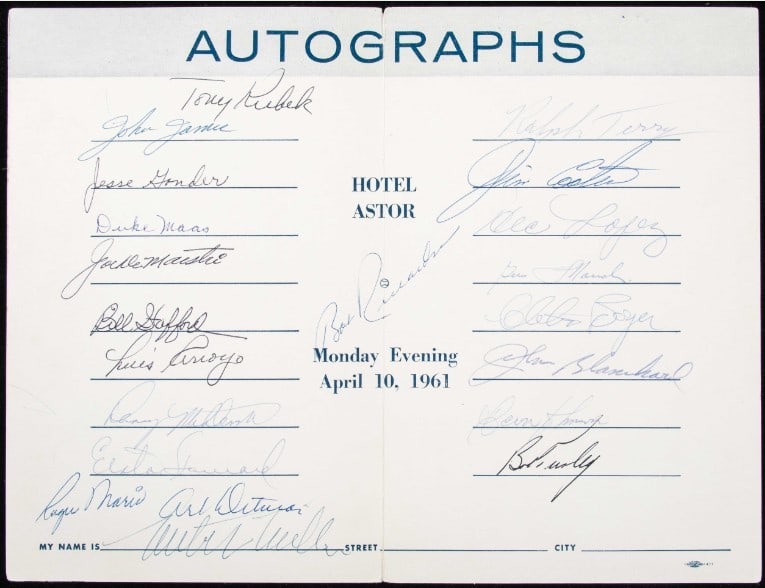 AUTOGRAPHS
Tony Kubek
John James
Jesse Gonder
Duke Maas
Joe DeMaestri
Bill Stafford
Luis Arroyo
Danny
Elston Howard
Roger Maris
Art Ditmar
HOTEL
ASTOR
Bob
Monday Evening
April 10, 1961
Ralph Terry
Jim Coates
Hec Lopez
Gus
Clete Boyer
John Blanchard
Deron Johnson
Bob Turley
MY NAME IS
STREET
CITY